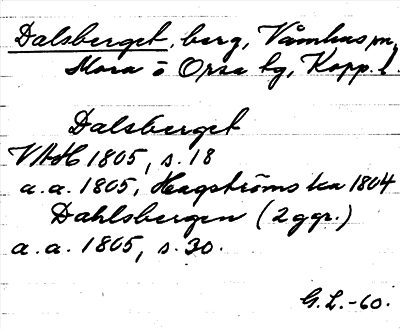 Dalsberget, berg, Våmhus sn,
Mora o Orsa tg, Kopp. l.
Dalsberget
VAH 1805, s. 18
a.a. 1805, Hagströms ka 1804
Dahlsbergen (2 ggr.)
a.a. 1805, s. 30.
G.L.-60.